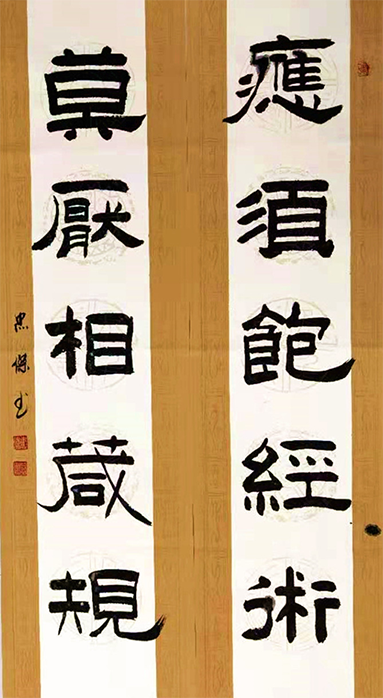 應須飽經術
莫厭相箴規
忠傑书